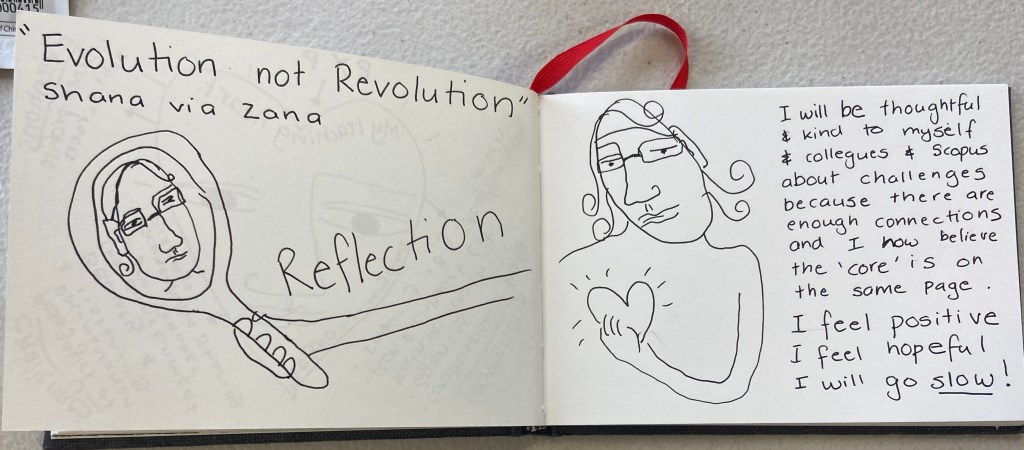 000415
"Evolution not Revolution"
Shana via Zana
Reflection
I will be thoughtful
& kind to myself
& collegues & Scopus
about challenges
because there are
enough connections
and I now believe
the 'core' is on
the same page.
I feel positive
I feel hopeful
I will go slow!